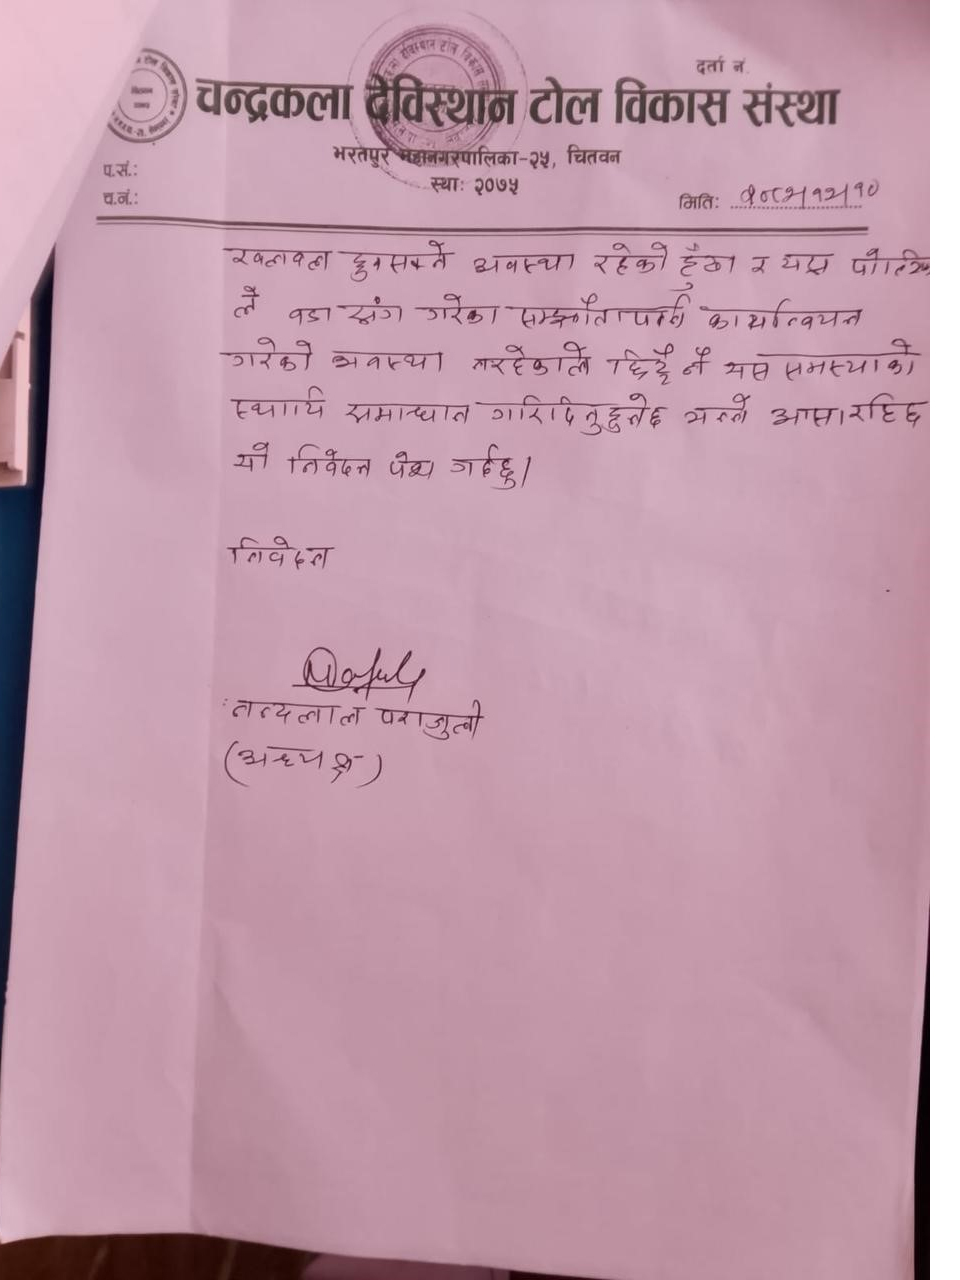 दर्ता नं.
चन्द्रकला देविस्थान टोल विकास संस्था
भरतपुर महानगरपालिका-२५, चितवन
स्था: २०७५
प.सं.:
च.नं.:
मिति:
खलबला हुनसक्ने अवस्था रहेको हुँदा र यस
ले वडा संग गरेका सम्झौता कार्यान्वयन
गरेको अवस्था नरहेकाले छिट्टै नै यस समस्याको
स्थायी समाधान गरिदिनुहुनेछ भन्ने आसा
यो निवेदन पेश गर्दछु।
निवेदन
नन्दलाल पराजुली
(अध्यक्ष)